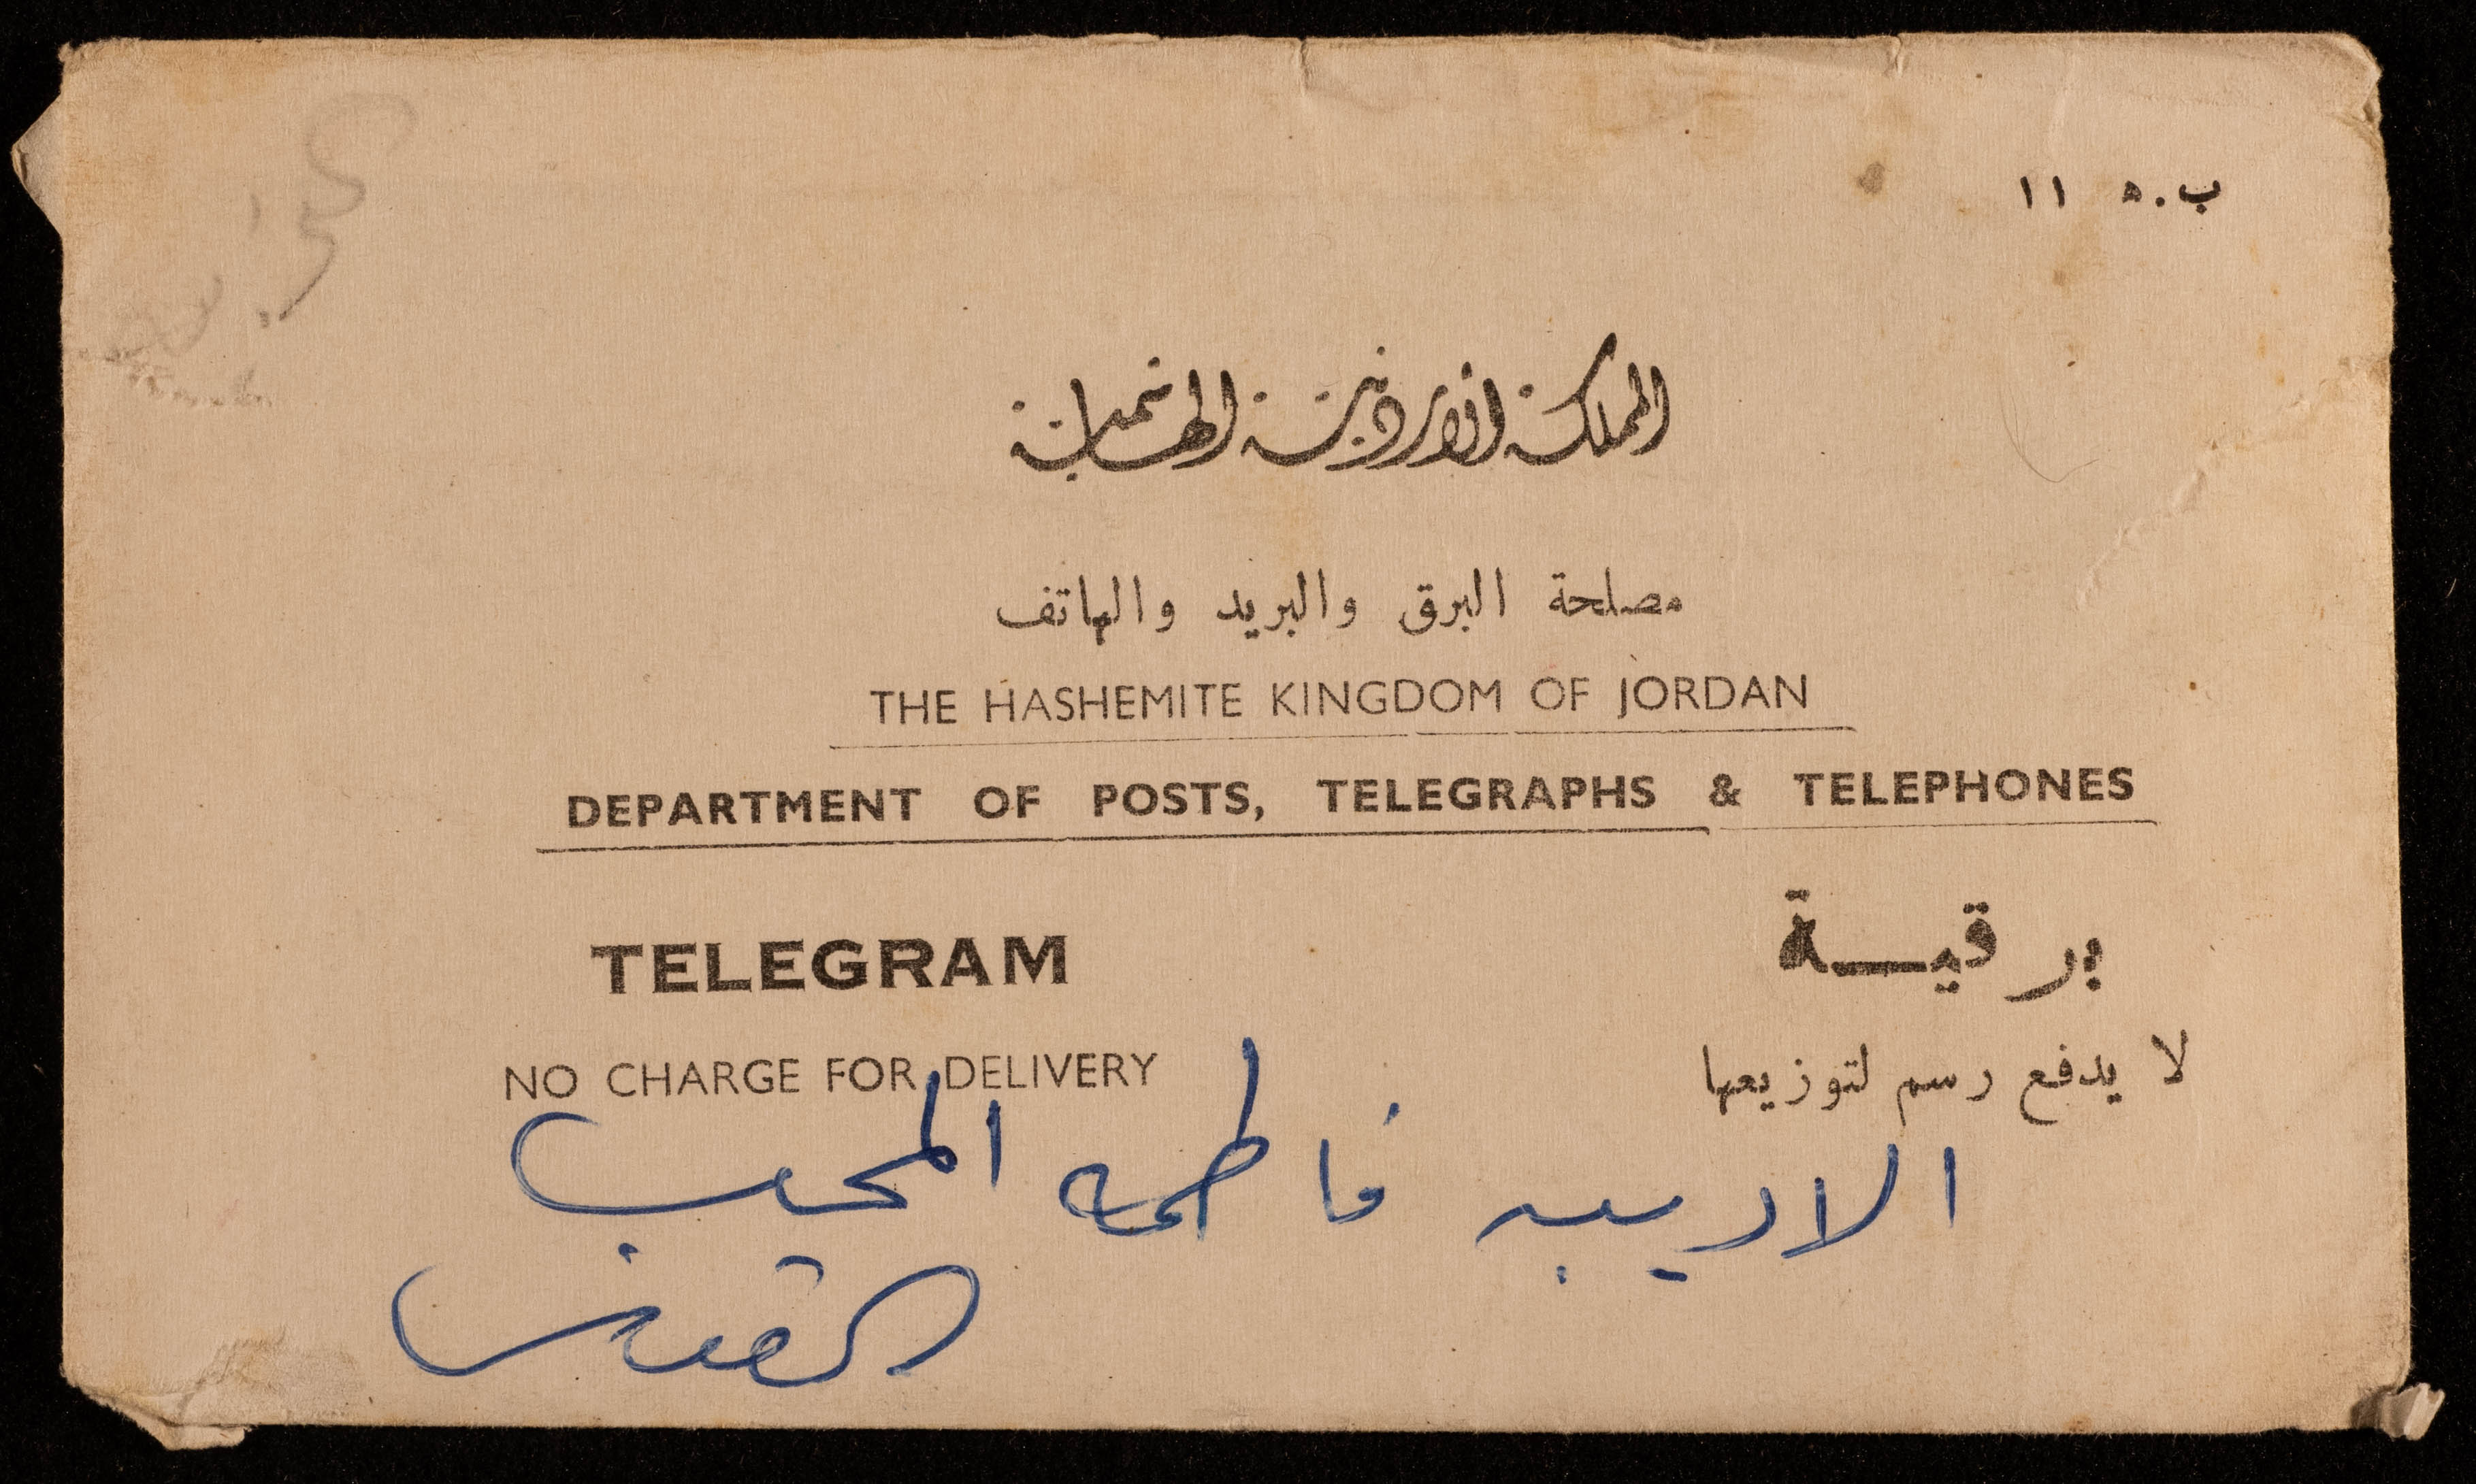 ب.ه ١١
المملكة الاردنية الهاشمية
مصلحة البرق والبريد والهاتف
THE HASHEMITE KINGDOM OF JORDAN
DEPARTMENT OF POSTS, TELEGRAPHS & TELEPHONES
TELEGRAM برقيــة
NO CHARGE FOR DELIVERY لا يدفع رسم لتوزيعها
الاديبه فاطمه المحب
القدس